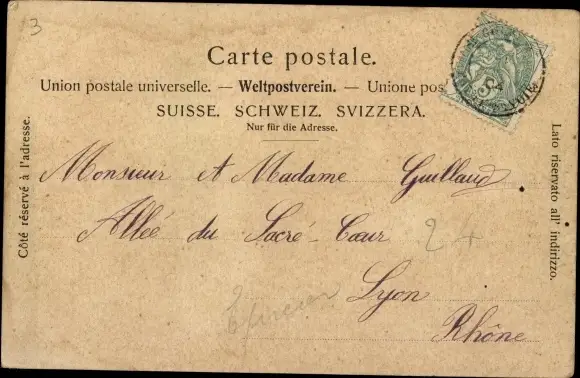 3
Carte postale.
Union postale universelle. — Weltpostverein. — Unione pos
SUISSE. SCHWEIZ. SVIZZERA.
Nur für die Adresse.
Côté réservé à l'adresse.
Lato riservato all' indirizzo.
Monsieur et Madame Guillaud
Allée du Sacré-Cœur
2+
Lyon
Rhône